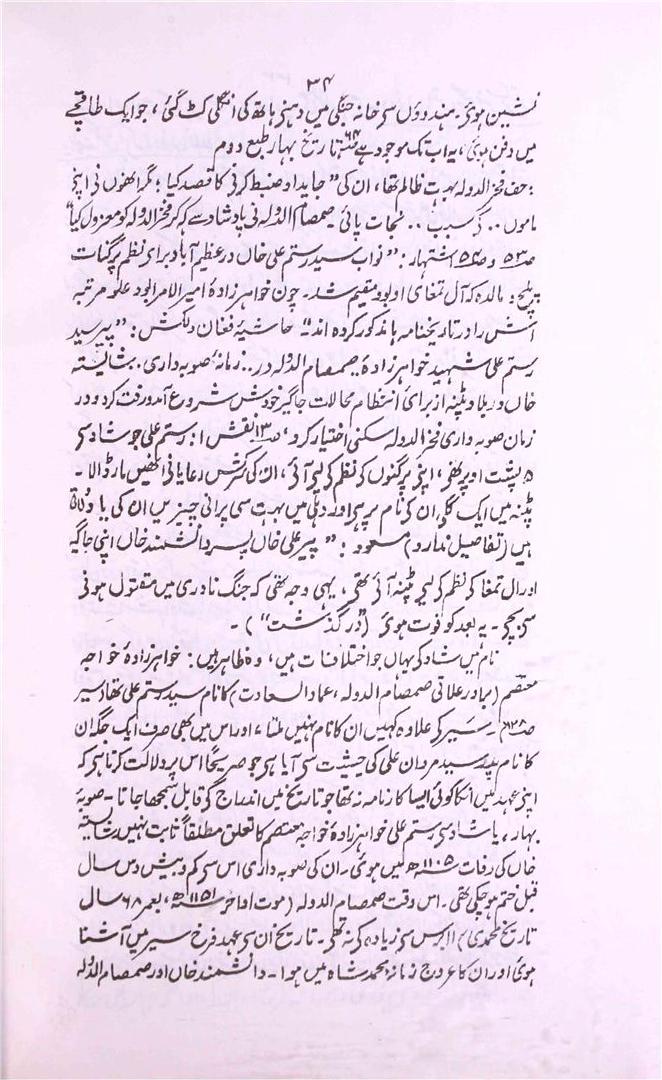 ۳۴
نشین ہوئی۔ ہندوؤں سی خانہ جنگی میں دہنی ہاتھ کی انگلی کٹ گئی، جو ایک طاقچے
میں دفن ہوئی، یہ اب تک موجود ہے ص۶۴ تاریخ بہار طبع دوم
: حف فخرالدولہ بہت ظالم تھا، ان کی "جایداد ضبط کرنی کا قصد کیا؛ مگر انھوں نی اپنی
ماموں .. کی سبب .. نجات پائی صمصام الدولہ نی پادشاہ سے کہ کر فخرالدولہ کو معزول کیا"
ص۵۳ و ص۵۴ اشتہار: "نواب سید رستم علی خاں در عظیم آباد برای نظم پرگنات
و مالدہ کہ آل تمغای او بود مقیم شد۔ چون خواہرزادۂ امیر الامرا بود علو مرتبہ
اش را در تاریخنامہ ہا مذکور کردہ اند" حاشیۂ فغان دلکش: "پیر سید
رستم علی شہید خواہرزادۂ صمصام الدولہ در .. زمانۂ صوبہ داری . شایستہ
خاں وربلاد پٹنہ از برای انتظام محالات جاگیر خودش شروع آمد و رفت کرد و در
زمان صوبہ داری فخرالدولہ سکنی اختیار کرد" ص۱۳ نقش ا: رستم علی جو شاد سی
۵ پشت اوپر تھی، اپنی پرگنوں کی نظم کی لیی آئی، ان کی سرکش رعایا نی انھیں مار ڈالا۔
پٹنہ میں ایک گلی ان کی نام پر ہی اور دہلی میں بہت سی پرانی چیزیں ان کی یاد دلاتی
ہیں (تفاصیل ندارد) مسعود: "پیر علی خاں پسر دانشمند خاں اپنی جاگیر
اور آل تمغا کی نظم کی لیی پٹنہ آئی تھی، یہی وجہ تھی کہ جنگ نادری میں مقتول ہونی
سی بچی۔ یہ بعد کو فوت ہوئی" (درگذشت")۔
نام میں شاد کی یہاں جو اختلافات ہیں، وہ ظاہر ہیں: خواہرزادۂ خواجہ
معتصم (برادر علاتی صمصام الدولہ، عماد السعادت) کا نام سید رستم علی تھا (سیر
ص۴۳۸)۔ سیر کی علاوہ کہیں ان کا نام نہیں ملتا، اور اس میں بھی صرف ایک جگہ ان
کا نام پدر سید مردان علی کی حیثیت سی آیا ہی جو صریحاً اس پر دلالت کرتا ہی کہ
اپنی عہد میں انکا کوئی ایسا کارنامہ نہ تھا جو تاریخ میں اندراج کی قابل سمجھا جاتا۔ صوبۂ
بہار، یا شاد سی رستم علی خواہرزادۂ خواجہ معتصم کا تعلق مطلقاً ثابت نہیں۔ شایستہ
خاں کی وفات ۱۱۰۵ھ میں ہوئی۔ ان کی صوبہ داری اس سی کم و بیش دس سال
قبل ختم ہو چکی تھی۔ اس وقت صمصام الدولہ (موت اواخر ۱۱۵۱ھ، بعمر ۶۸ سال
تاریخ محمدی) ۱۱ برس سی زیادہ کی نہ تھی۔ تاریخ ان سی عہد فرخ سیر میں آشنا
ہوئی اور ان کا عروج زمانۂ محمد شاہ میں ہوا۔ دانشمند خاں اور صمصام الدولہ